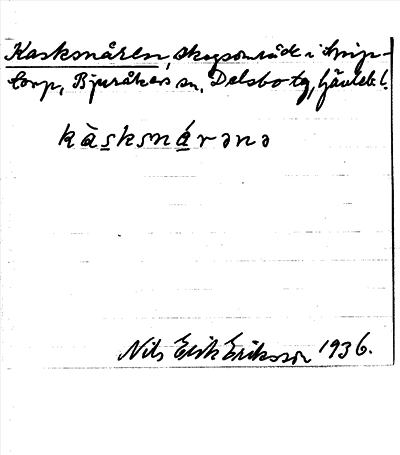 Kasksnåren, skogsområde i Snip-
torp, Bjuråkers sn, Delsbo tg, Gävleb. l.
kàsksnárənə
Nils Erik Eriksson 1936.